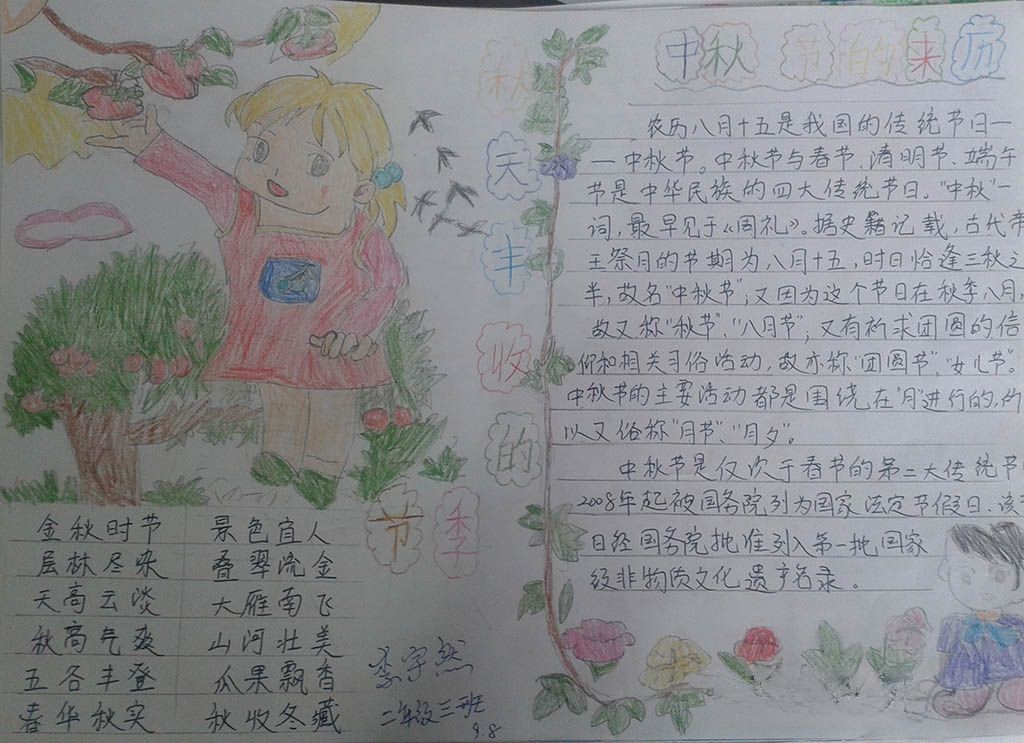 秋天丰收的节季
金秋时节 景色宜人
层林尽染 叠翠流金
天高云淡 大雁南飞
秋高气爽 山河壮美
五各丰登 瓜果飘香
春华秋实 秋收冬藏
李宇然
二年级三班
9.8
中秋节的来历
农历八月十五是我国的传统节日—
—中秋节。中秋节与春节、清明节、端午
节是中华民族的四大传统节日。“中秋”一
词,最早见于《周礼》。据史籍记载,古代帝
王祭月的节期为八月十五,时日恰逢三秋之
半,故名“中秋节”;又因为这个节日在秋季八月,
故又称“秋节”、“八月节”;又有祈求团圆的信
仰和相关习俗活动,故亦称“团圆节”、“女儿节”。
中秋节的主要活动都是围绕在“月”进行的,所
以又俗称“月节”、“月夕”。
中秋节是仅次于春节的第二大传统节
2008年起被国务院列为国家法定节假日、该
日经国务院批准列入第一批国家
级非物质文化遗产名录。